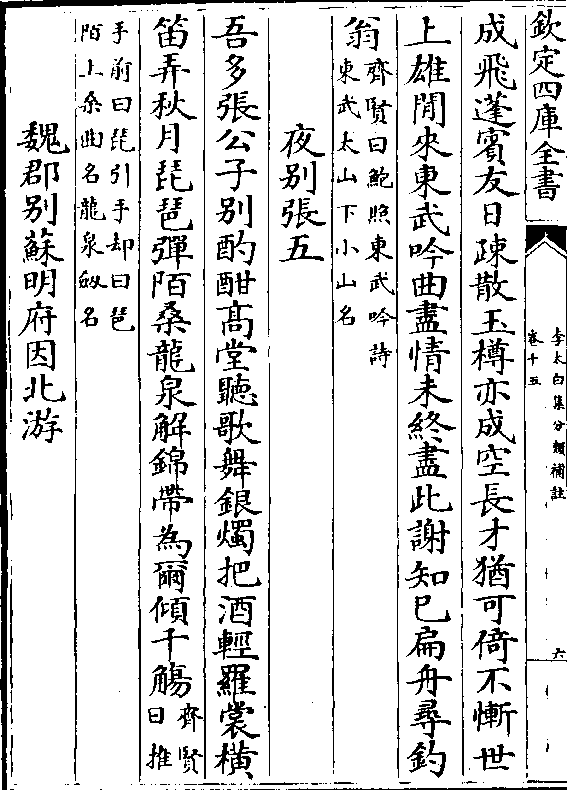 欽定四庫全書
李太白集分類補註
卷十五
六
成飛蓬賓友日疎散玉樽亦成空長才猶可倚不慚世
上雄閒來東武吟曲盡情未終盡此謝知已扁舟尋釣
翁
齊賢曰鮑照東武吟詩
東武太山下小山名
夜别張五
吾多張公子别酌酣髙堂聽歌舞銀燭把酒輕羅裳横
笛弄秋月琵琶彈陌桑龍泉解錦帶為爾傾千觴
齊賢
曰推
手前曰琵引手却曰琶
陌上桑曲名龍泉劔名
魏郡别蘇明府因北游